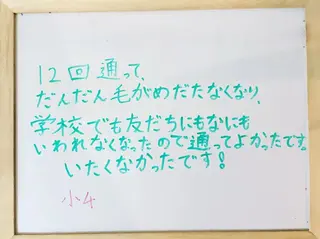 12回通って、
だんだん毛がめだたなくなり、
学校でも友だちにもなにも
いわれなくなったので通ってよかったです。
いたくなかったです!
小4